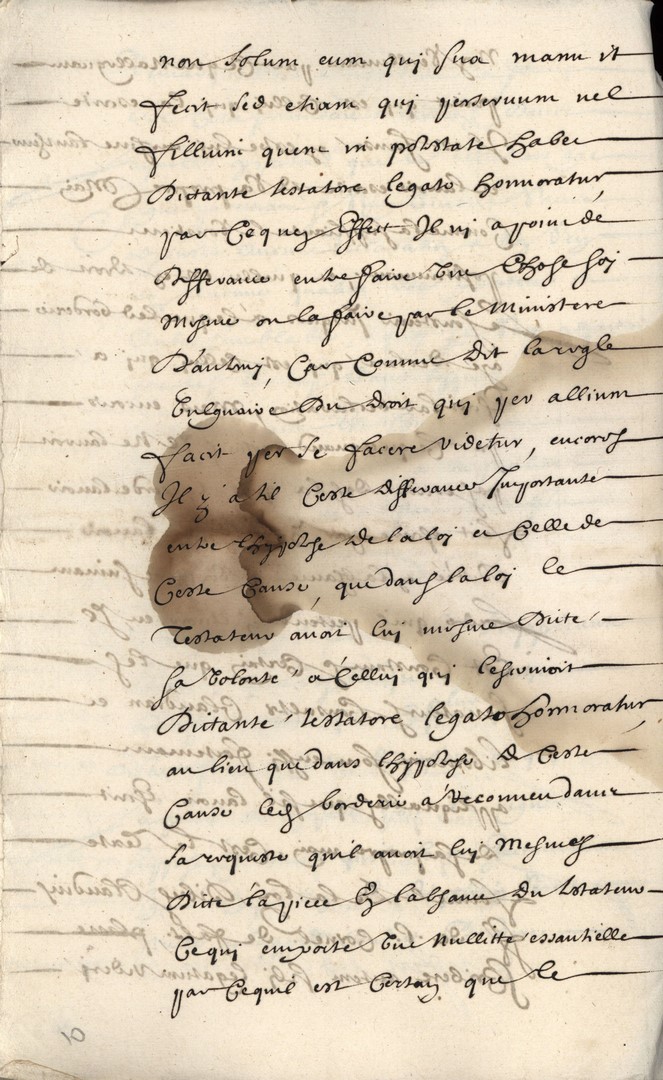 non solum eum qui sua manu it
fecit sed etiam qui perservum vel
filliumi quem in potestate habet
Dictante testatore legato honnoratur
par Cequen Effect Il ni a poin de
differance entre faire Une Chose soi
mesme ou la faire par le Ministere
D'autrui, Car Comme dit la regle
Vulguaire Du droit qui per allium
facit per se facere videtur, encores
Il y a til Ceste differance Importante
entre lhypotese de la loi et Celle de
Ceste Cause, que dans la loi le
Testateur avoit lui mesme Dicte
sa volonté a Cellui qui lescrivoit
Dictante testatore legato honnoratur
au lieu que dans lhypotese de Ceste
Cause led borderie a recconneu dans
sa requeste quil avoit lui Mesmes
Dicte la piece En labsance Du testateur
Ce qui emporte Une Nullitte essantielle
par Cequil est Certain que le
10